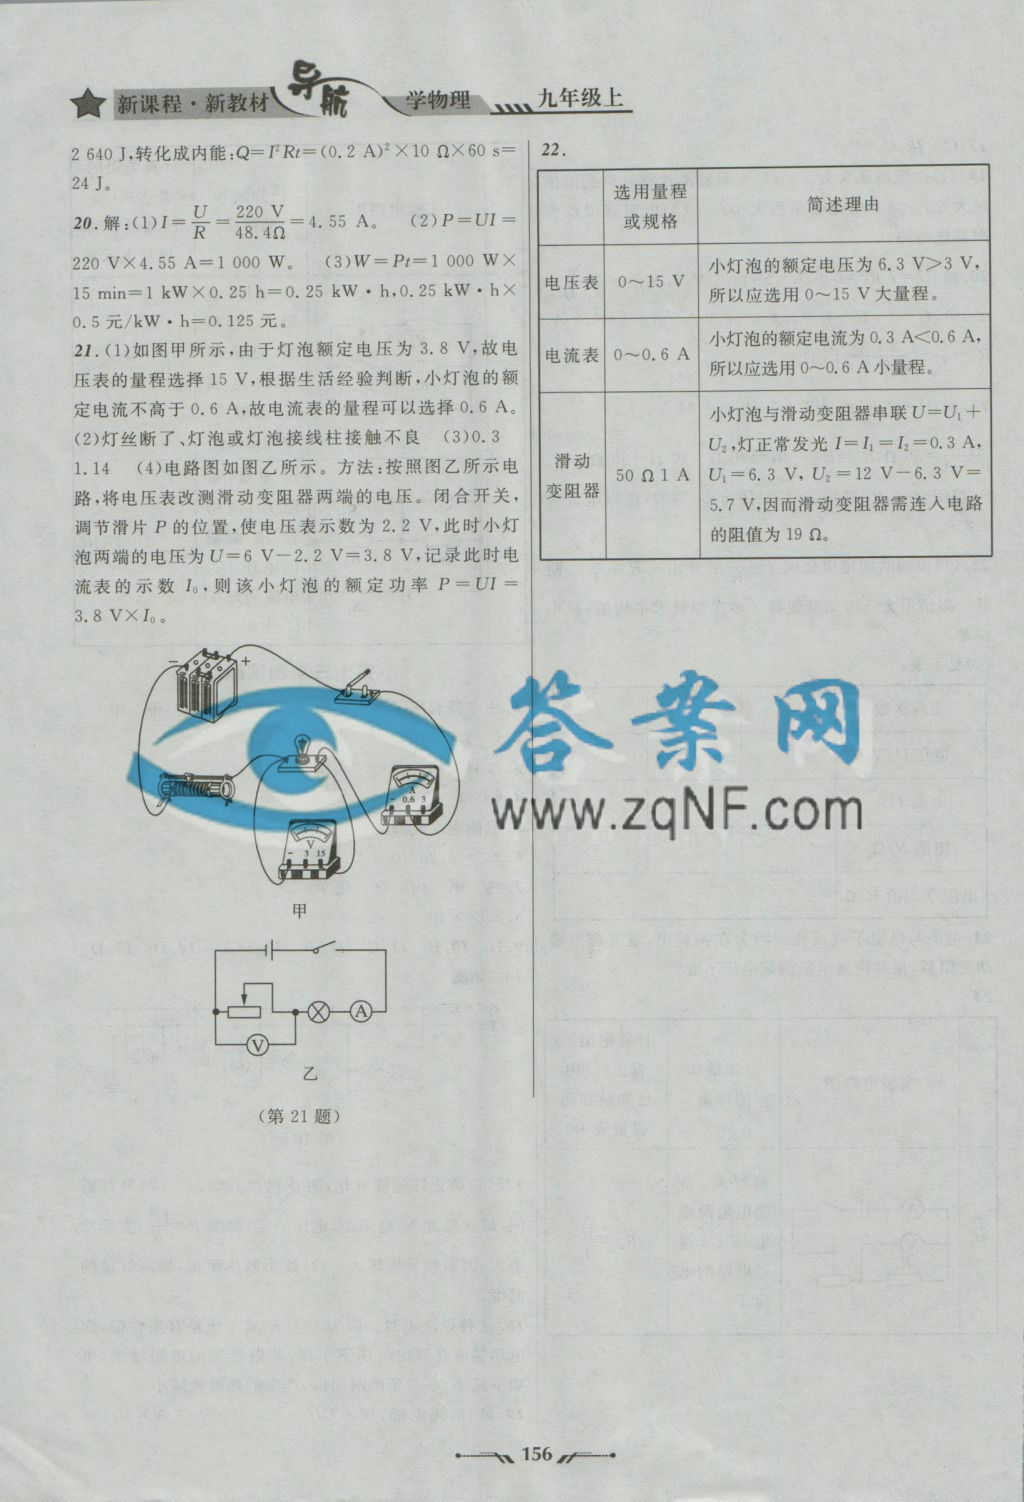 新课程·新教材 导航 学物理 九年级上
2 640 J,转化成内能:Q=I²Rt=(0.2 A)²×10 Ω×60 s=
24 J。
20.解:(1)I=U/R=220 V/48.4Ω=4.55 A。 (2)P=UI=
220 V×4.55 A=1 000 W。 (3)W=Pt=1 000 W×
15 min=1 kW×0.25 h=0.25 kW·h,0.25 kW·h×
0.5元/kW·h=0.125元。
21.(1)如图甲所示,由于灯泡额定电压为3.8 V,故电
压表的量程选择15 V,根据生活经验判断,小灯泡的额
定电流不高于0.6 A,故电流表的量程可以选择0.6 A。
(2)灯丝断了、灯泡或灯泡接线柱接触不良 (3)0.3
1.14 (4)电路图如图乙所示。方法:按照图乙所示电
路,将电压表改测滑动变阻器两端的电压。闭合开关,
调节滑片P的位置,使电压表示数为2.2 V,此时小灯
泡两端的电压为U=6 V-2.2 V=3.8 V,记录此时电
流表的示数I₀,则该小灯泡的额定功率P=UI=
3.8 V×I₀。
- +
A
- 0.6 3
V
- 3 15
甲
A
V
乙
(第21题)
22.
选用量程
或规格
简述理由
电压表
0~15 V
小灯泡的额定电压为6.3 V>3 V,
所以应选用0~15 V大量程。
电流表
0~0.6 A
小灯泡的额定电流为0.3 A<0.6 A,
所以应选用0~0.6 A小量程。
滑动
变阻器
50 Ω 1 A
小灯泡与滑动变阻器串联U=U₁+
U₂,灯正常发光I=I₁=I₂=0.3 A,
U₁=6.3 V, U₂=12 V-6.3 V=
5.7 V,因而滑动变阻器需连入电路
的阻值为19 Ω。
答案网
www.zqNF.com
156